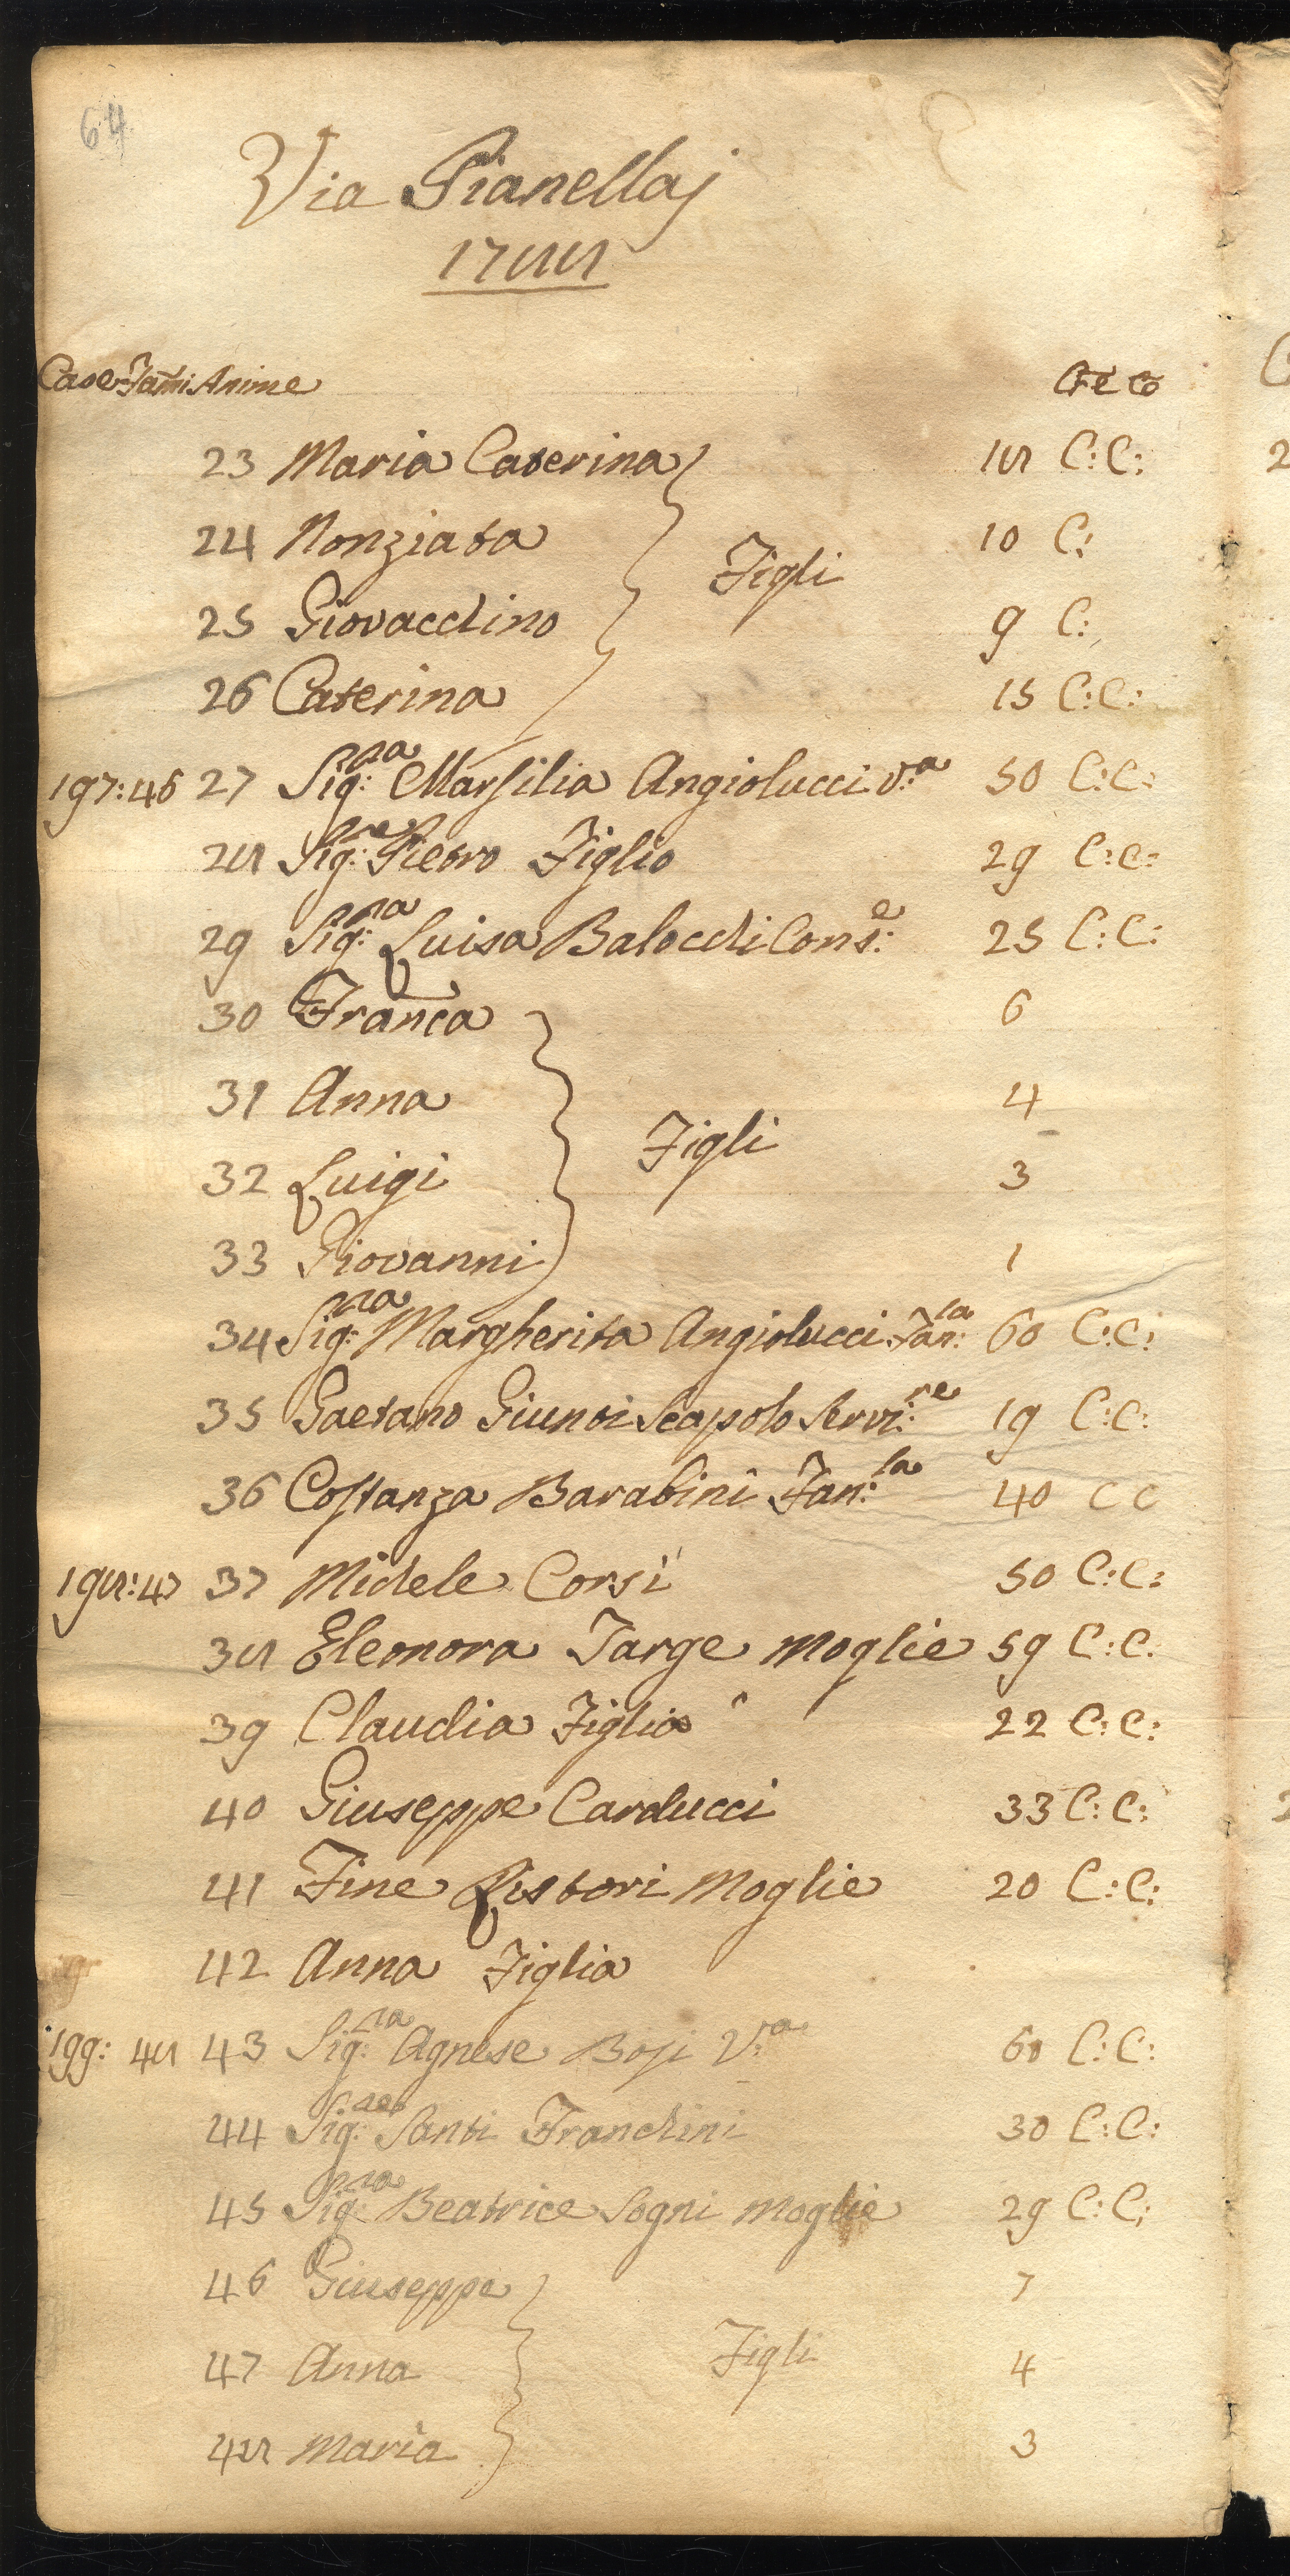 64
Via Pianellaj
1788
Case Fam̃i Anime Cr̃e Cõ
23 Maria Caterina 18 C: C:
24 Nonziata 10 C:
Figli
25 Giovacchino 9 C:
26 Caterina 15 C: C:
197: 46 27 Sig:ra Marsilia Angiolucci V:a 50 C: C:
28 Sig:re Pietro Figlio 29 C: C:
29 Sig:ra Luisa Balocchi Cons:e 25 C: C:
30 Franc̃a 6
31 Anna 4
Figli
32 Luigi 3
33 Giovanni 1
34 Sig:ra Margherita Angiolucci Fan:la 60 C: C:
35 Gaetano Giunti Scapolo Servi:re 19 C: C:
36 Costanza Barabini Fan:la 40 C C
198: 47 37 Michele Corsi 50 C: C:
38 Eleonora Targe Moglie 59 C: C:
39 Claudia Figlia 22 C: C:
40 Giuseppe Carducci 33 C: C:
41 Fine Listori Moglie 20 C: C:
42 Anna Figlia
199: 48 43 Sig:ra Agnese Bosi V:a 60 C: C:
44 Sig:re Santi Franchini 30 C: C:
45 Sig:ra Beatrice Sogni Moglie 29 C: C:
46 Giuseppe 7
47 Anna Figli 4
48 Maria 3